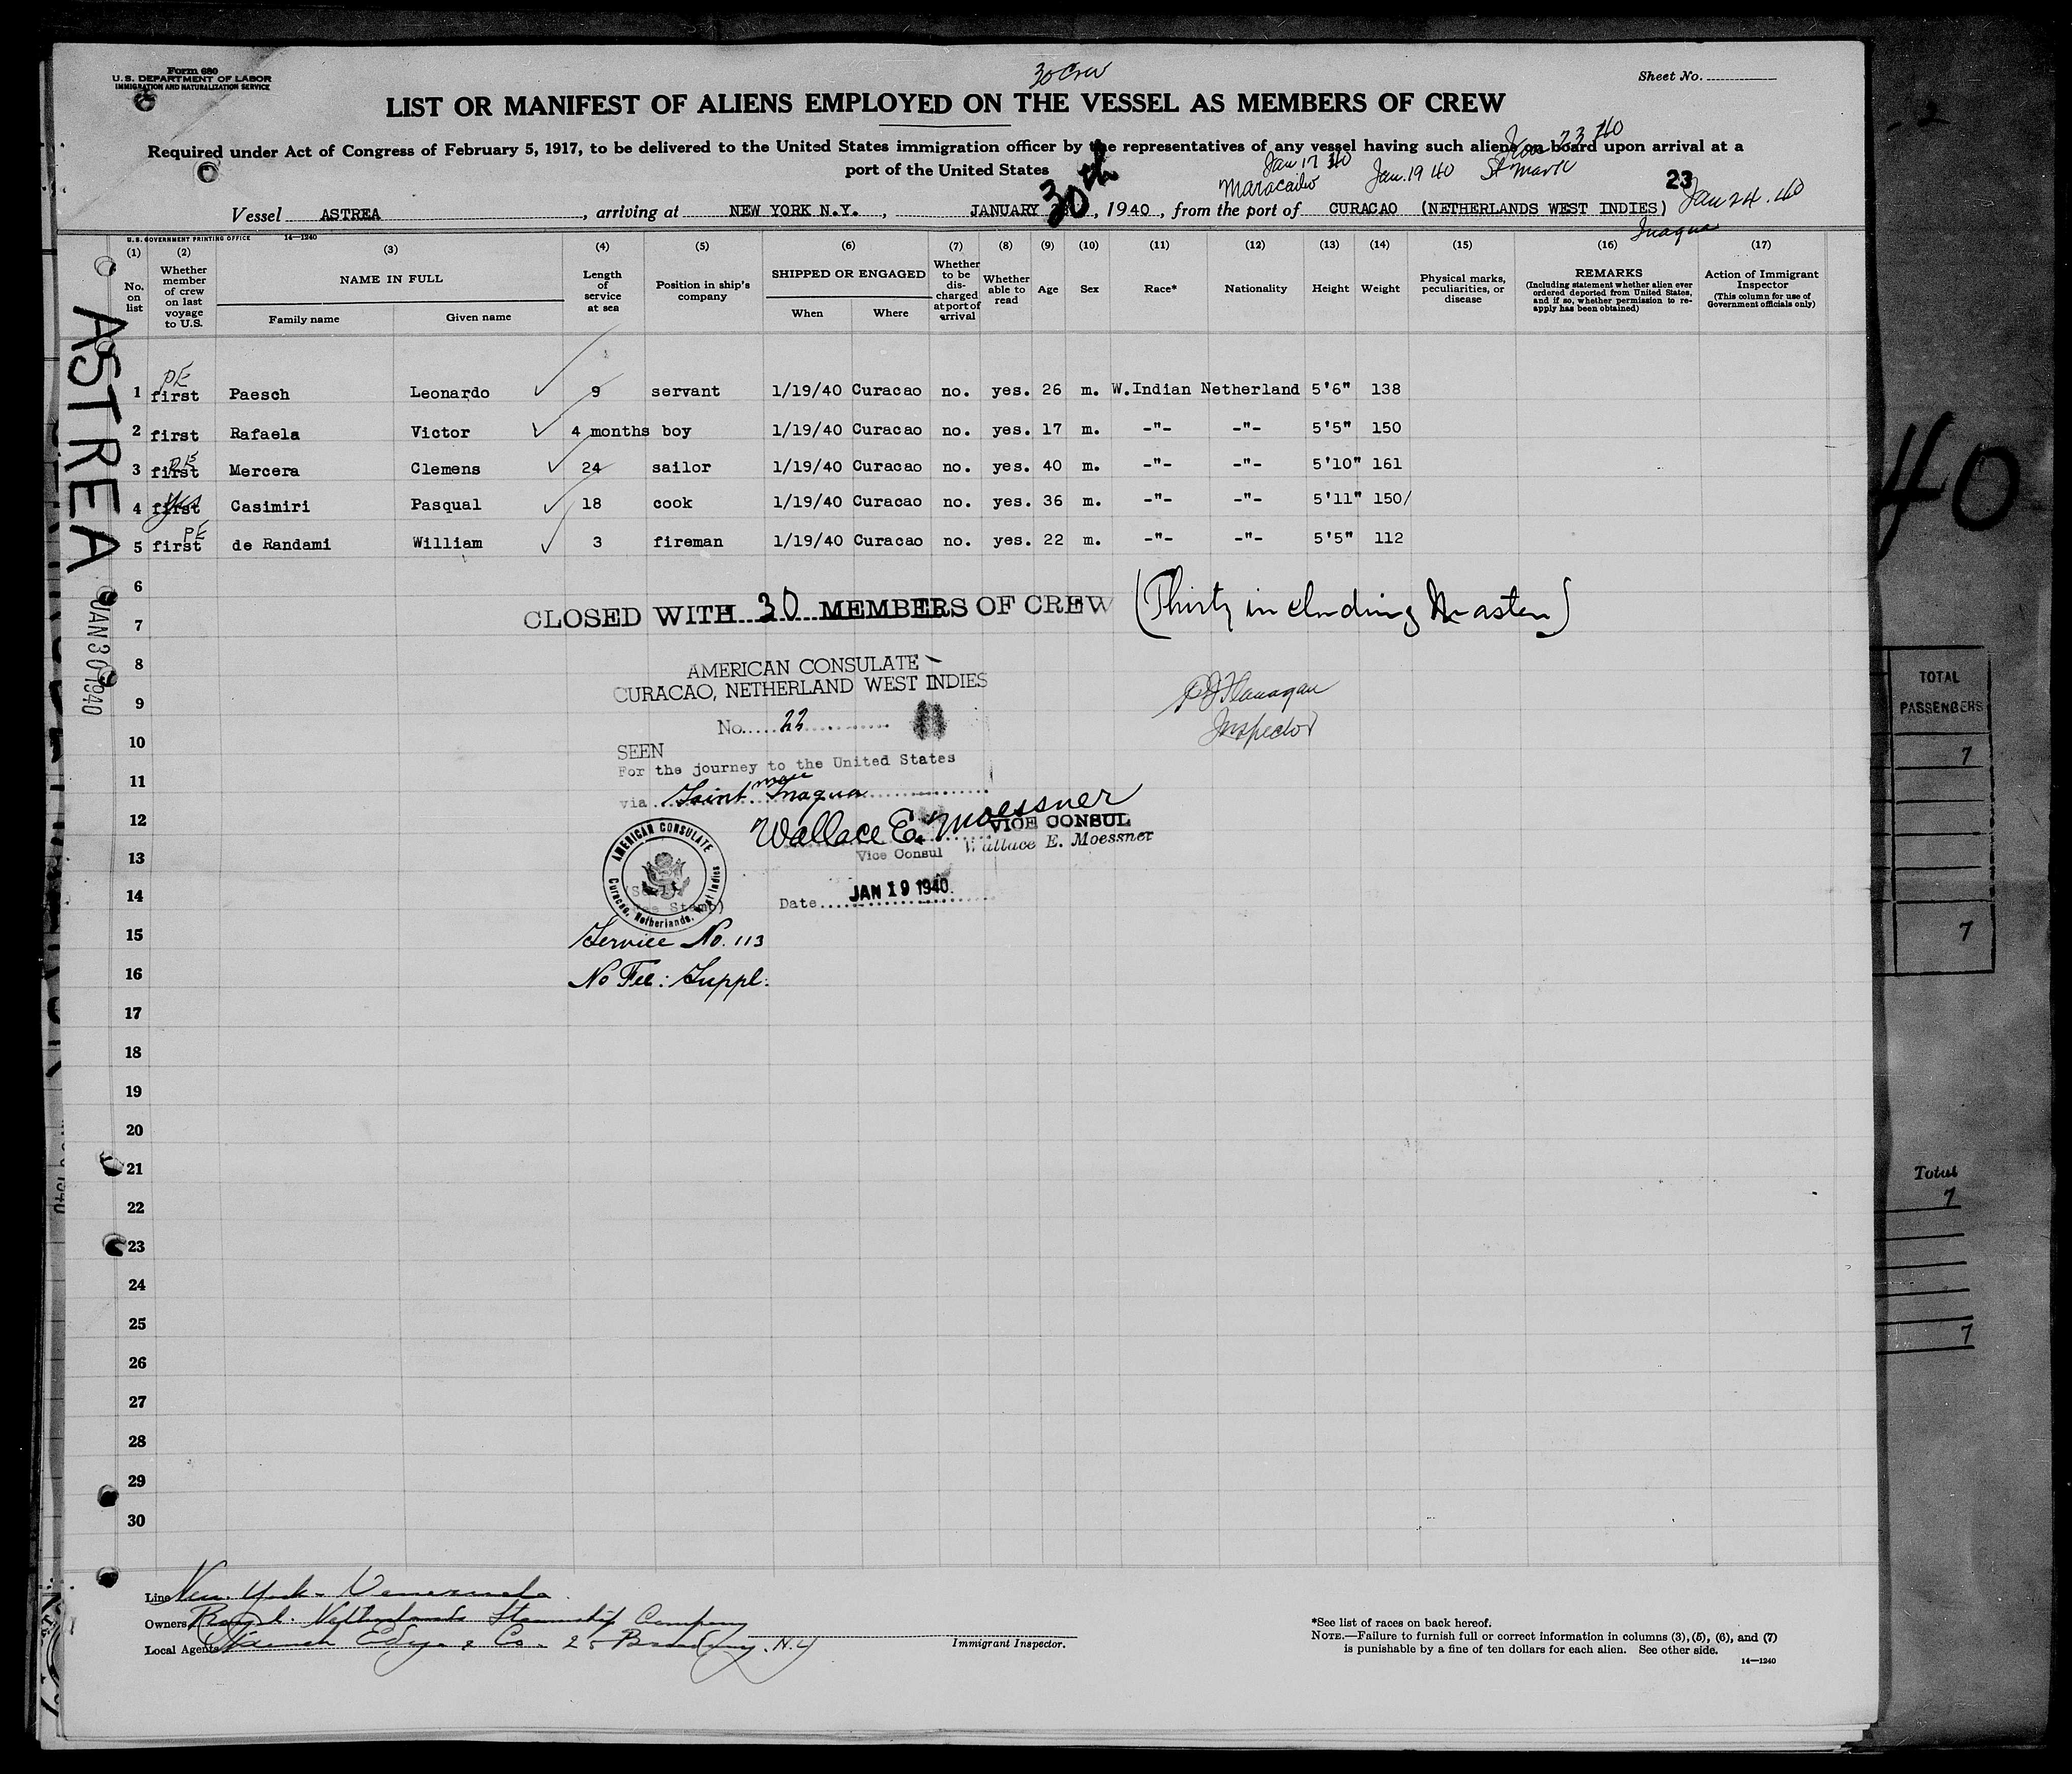 Form 680
U.S. DEPARTMENT OF LABOR
IMMIGRATION AND NATURALIZATION SERVICE
30 Crew
Sheet No.
LIST OR MANIFEST OF ALIENS EMPLOYED ON THE VESSEL AS MEMBERS OF CREW
Required under Act of Congress of February 5, 1917, to be delivered to the United States immigration officer by the representatives of any vessel having such aliens on board upon arrival at a
port of the United States
Jan 17 40
Maracaibo
Jan. 19 40
23 40
St Marc
23
Jan 24. 40
Inagua
Vessel ASTREA, arriving at NEW YORK N.Y., JANUARY 30th, 1940, from the port of CURACAO (NETHERLANDS WEST INDIES)
U.S. GOVERNMENT PRINTING OFFICE 14—1240
(1) (2) (3) (4) (5) (6) (7) (8) (9) (10) (11) (12) (13) (14) (15) (16) (17)
No. on list
Whether member of crew on last voyage to U.S.
NAME IN FULL
Family name Given name
Length of service at sea
Position in ship's company
SHIPPED OR ENGAGED
When Where
Whether to be discharged at port of arrival
Whether able to read
Age
Sex
Race*
Nationality
Height
Weight
Physical marks, peculiarities, or disease
REMARKS
(Including statement whether alien ever ordered deported from United States, and if so, whether permission to reapply has been obtained)
Action of Immigrant Inspector
(This column for use of Government officials only)
PE
1 first Paesch Leonardo 9 servant 1/19/40 Curacao no. yes. 26 m. W.Indian Netherland 5'6" 138
2 first Rafaela Victor 4 months boy 1/19/40 Curacao no. yes. 17 m. -"- -"- 5'5" 150
PE
3 first Mercera Clemens 24 sailor 1/19/40 Curacao no. yes. 40 m. -"- -"- 5'10" 161
yes
4 first Casimiri Pasqual 18 cook 1/19/40 Curacao no. yes. 36 m. -"- -"- 5'11" 150/
PE
5 first de Randami William 3 fireman 1/19/40 Curacao no. yes. 22 m. -"- -"- 5'5" 112
6
CLOSED WITH 30 MEMBERS OF CREW (Thirty including Master)
7
8
AMERICAN CONSULATE
CURACAO, NETHERLAND WEST INDIES
9
No. 22
Flanagan
Inspector
10
SEEN
For the journey to the United States
11
via Saint Marc Inagua
12
Wallace E. Moessner
VICE CONSUL
Wallace E. Moessner
Vice Consul
13
AMERICAN CONSULATE
Curacao, Netherlands, West Indies
14
Date JAN 19 1940.
15
Service No. 113
16
No Fee: Suppl:
17
18
19
20
21
22
23
24
25
26
27
28
29
30
ASTREA
JAN 30 1940
40
TOTAL
PASSENGERS
7
7
Total
7
7
Line New York - Venezuela
Owners Royal Netherlands Steamship Company
Local Agents Funch Edye & Co. 25 Broadway. N.Y
Immigrant Inspector.
*See list of races on back hereof.
NOTE.—Failure to furnish full or correct information in columns (3), (5), (6), and (7)
is punishable by a fine of ten dollars for each alien. See other side.
14—1240